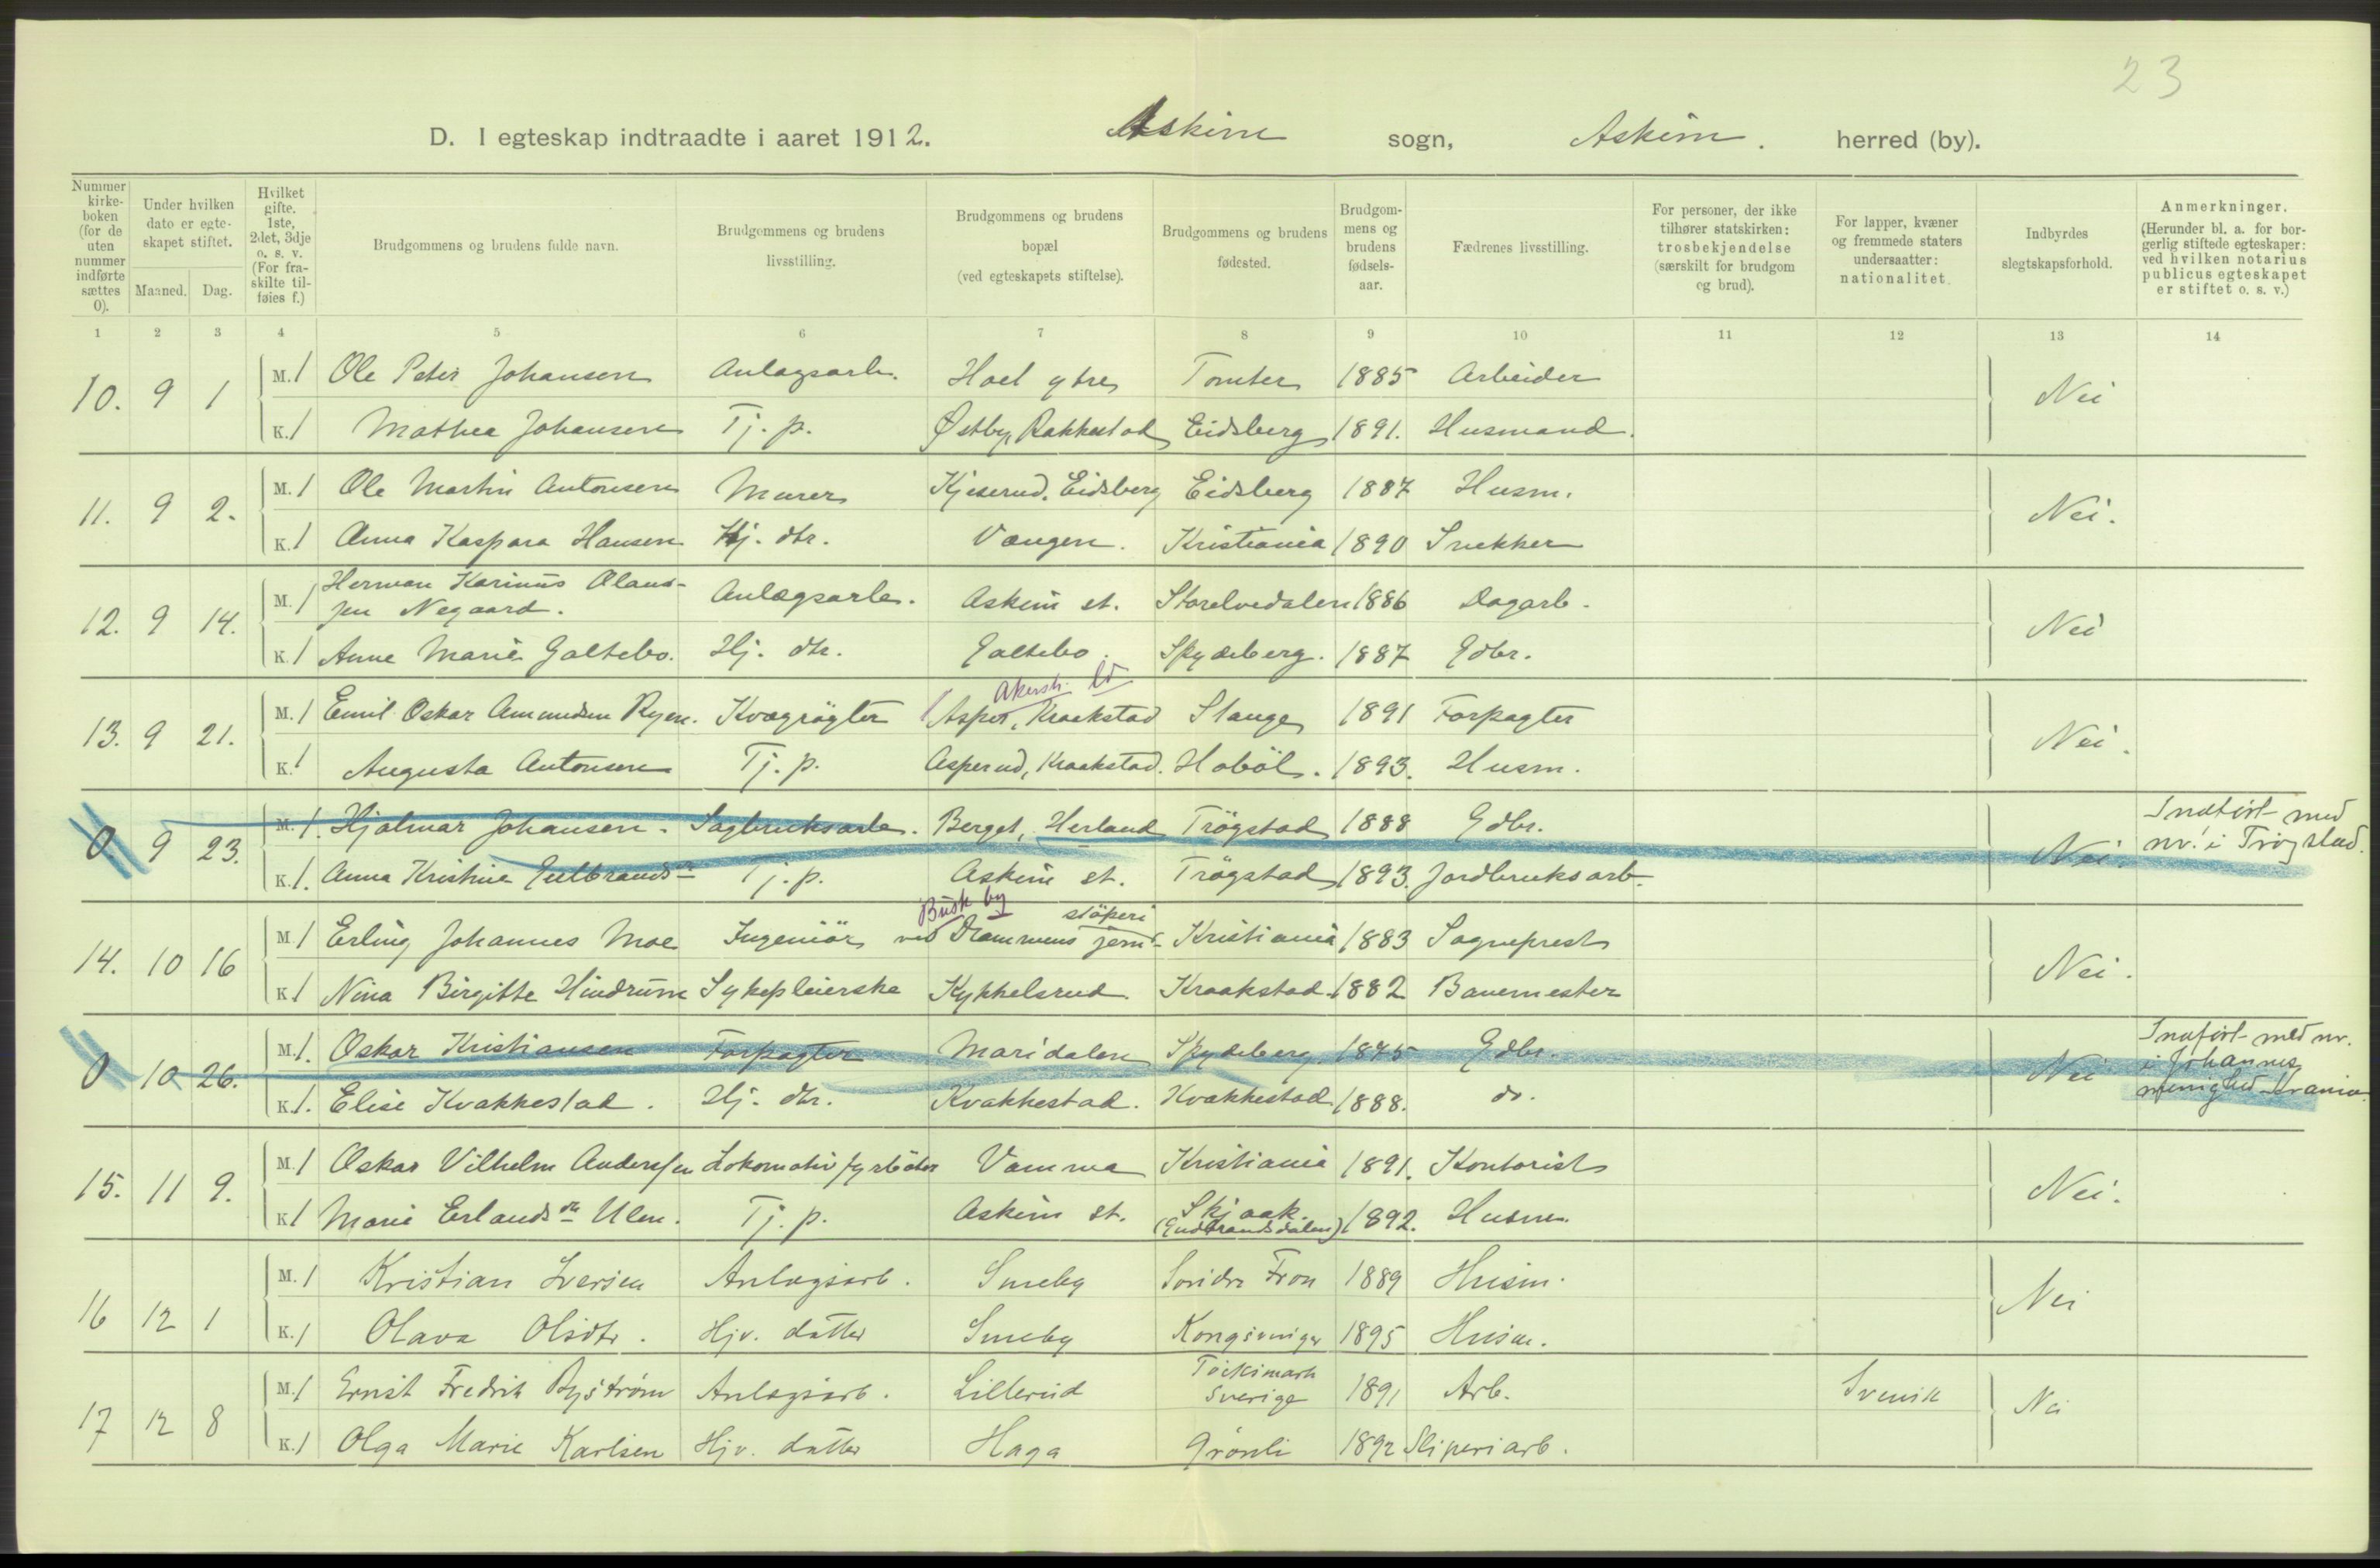 23
D. I egteskap indtraadte i aaret 1912. Askim sogn, Askim. herred (by).
Nummer kirkeboken (for de uten nummer indførte sættes 0). Under hvilken dato er egteskapet stiftet. Maaned. Dag. Hvilket gifte. 1ste, 2det, 3dje o. s. v. (For fraskilte tilføies f.) Brudgommens og brudens fulde navn. Brudgommens og brudens livsstilling. Brudgommens og brudens bopæl (ved egteskapets stiftelse). Brudgommens og brudens fødested. Brudgommens og brudens fødselsaar. Fædrenes livsstilling. For personer, der ikke tilhører statskirken: trosbekjendelse (særskilt for brudgom og brud). For lapper, kvæner og fremmede staters undersaatter: nationalitet. Indbyrdes slegtskapsforhold. Anmerkninger. (Herunder bl. a. for borgerlig stiftede egteskaper: ved hvilken notarius publicus egteskapet er stiftet o. s. v.)
1 2 3 4 5 6 7 8 9 10 11 12 13 14
10. 9 1 M. 1 Ole Peter Johansen Anlægsarb. Hoel ytre Tomter 1885 Arbeider Nei
K. 1 Mathea Johansen Tj. p. Østby, Rakkestad Eidsberg 1891. Husmand.
11. 9 2. M. 1 Ole Martin Antonsen Murer Kjeserud, Eidsberg Eidsberg 1887 Husm. Nei.
K. 1 Anna Kaspara Hansen Hj. dtr. Vangen. Kristiania 1890 Snekker
12. 9 14. M. 1 Herman Karinus Olaus-
sen Negaard. Anlægsarb. Askim st. Storelvedalen 1886 Dagarb. Nei
K. 1 Anne Marie Galtebo. Hj. dtr. Galtebo. Spydeberg. 1887 Gdbr.
Akersh. ld
13. 9 21. M. 1 Emil Oskar Amundsen Ryen. Kvægrøgter Asper, Kraakstad Stange 1891 Forpagter Nei.
K. 1 Augusta Antonsen Tj. p. Asperud, Kraakstad. Hobøl. 1893. Husm.
0. 9 23. M. 1. Hjalmar Johansen. Sagbruksarb. Berget, Herland Trøgstad 1888 Gdbr. Nei. Indført med
nr. i Trøgstad.
K. 1. Anna Kristine Gulbrandsdr Tj. p. Askim st. Trøgstad 1893. Jordbruksarb.
Busk by støperi
14. 10 16 M. 1 Erling Johannes Moe Ingeniør ved Drammens jern- Kristiania 1883 Sogneprest Nei.
K. 1 Nina Birgitte Hindrum Sykepleierske Kykkelsrud. Kraakstad. 1882 Banemester
0 10 26. M. 1. Oskar Kristiansen Forpagter Maridalen Spydeberg 1875 Gdbr. Nei Indført med nr.
i Johannes
menighed Krania.
K. 1. Elise Kvakkestad. Hj. dtr. Kvakkestad. Kvakkestad 1888. do.
15. 11 9. M. 1 Oskar Vilhelm Anderssen Lokomotivfyrbøter Vamma Kristiania 1891. Kontorist Nei.
K. 1 Marie Erlandsdr Ulen. Tj. p. Askim st. Skjaak.
(Gudbrandsdalen) 1892. Husm.
16 12 1 M. 1 Kristian Iversen Anlægsarb. Smeby Søndre Fron 1889 Husm. Nei
K. 1 Olava Olsdtr. Hjv. datter Smeby Kongsvinger 1895 Husm.
17 12 8 M. 1 Ernst Fredrik Byström Anlægsarb. Lillerud Töcksmark
Sverige 1891 Arb. Svensk Nei
K. 1 Olga Marie Karlsen Hjv. datter Haga Grønli 1892 Sliperiarb.